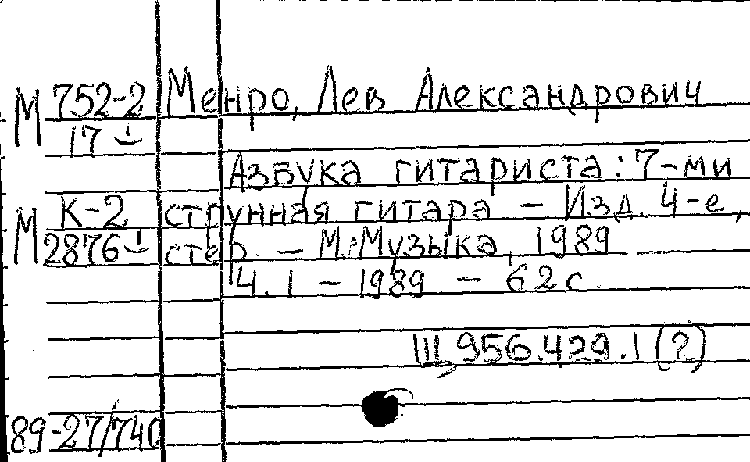 М 752-2 Менро, Лев Александрович
17
Азбука гитариста: 7-ми
М К-2 струнная гитара – Изд. 4-е,
2876 стер. – М.: Музыка, 1989
Ч. 1 – 1989 – 62 с
Щ 956.429.1 (2)
89-27/740